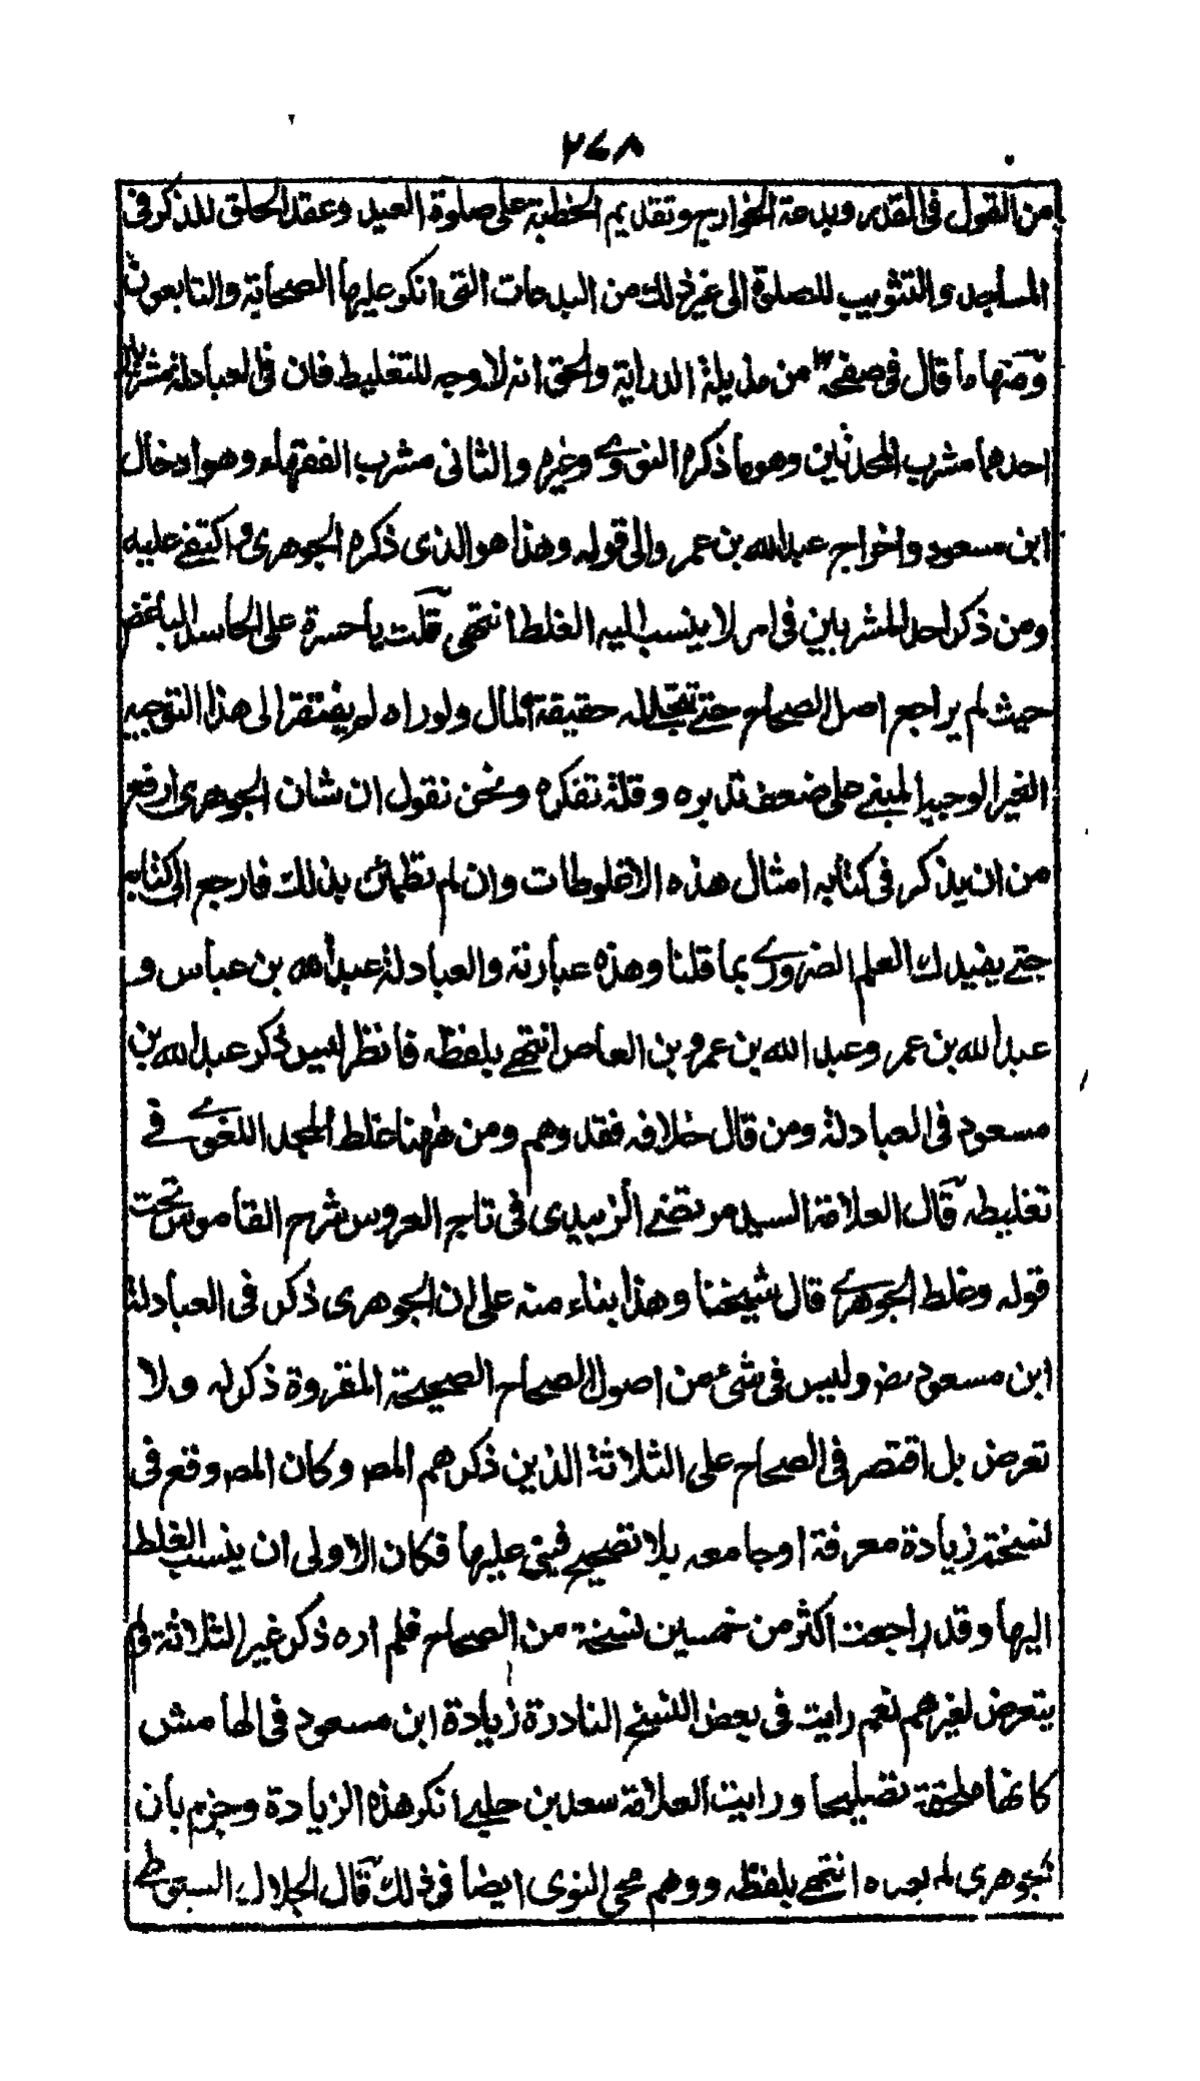 ٢٦٨
من القول فى القدر وبدعة الخوارج وتقديم الخطبة على صلوة العيد وعقد الحلق للذكر فى
المساجد والتثويب للصلوة الى غير ذلك من البدعات التى انكر عليها الصحابة والتابعون
ومنها ما قال فى صفحة من مذيلة الدراية والحق انه لا وجه للتغليط فان فى العبادلة مشربان
احدهما مشرب المحدثين وهو ما ذكره النووى وغيره والثانى مشرب الفقهاء وهو ادخال
ابن مسعود واخراج عبدالله بن عمر والى قوله وهذا هو الذى ذكره الجوهرى واكتفى عليه
ومن ذكر احد المشربين فى امر لا ينسب اليه الغلط انتهى قلت يا حسرة على الحاسد الباغض
حيث لم يراجع اصل الصحاح حتى تتجلى له حقيقة المال ولو راه لم يفتقر الى هذا التوجيه
الغير الوجيه المبنى على ضعف تدبره وقلة تفكره ونحن نقول ان شان الجوهرى ارفع
من ان يذكر فى كتابه امثال هذه الاغلوطات وان لم تطمئن بذلك فارجع الى كتابه
حتى يفيدك العلم الضرورى بما قلنا وهذه عبارته والعبادلة عبد الله بن عباس و
عبد الله بن عمر وعبد الله بن عمرو بن العاص انتهى بلفظه فانظر ليس ذكر عبد الله بن
مسعود فى العبادلة ومن قال خلافه فقد وهم ومن ههنا غلط المجد اللغوى فى
تغليطه قال العلامة السيد مرتضى الزبيدى فى تاج العروس شرح القاموس تحت
قوله وغلط الجوهرى قال شيخنا وهذا بناء منه على ان الجوهرى ذكر فى العبادلة
ابن مسعود رض وليس فى شئ من اصول الصحاح الصحيحة المقروة ذكر له ولا
تعرض بل اقتصر فى الصحاح على الثلاثة الذين ذكرهم المص وكان المص وقع فى
نسخته زيادة معرفة او جامعه بلا تصحيح فبنى عليها فكان الاولى ان ينسب الغلط
اليها وقد راجعت اكثر من خمسين نسخة من الصحاح فلم اره ذكر غير الثلاثة ولم
يتعرض لغيرهم نعم رايت فى بعض النسخ النادرة زيادة ابن مسعود فى الهامش
كانها ملحقة تصليحا ورايت العلامة سعد بن حلبى انكر هذه الزيادة وجزم بان
الجوهرى لم يعده انتهى بلفظه ووهم محى النوى ايضا فى ذلك قال الجلال السيوطى